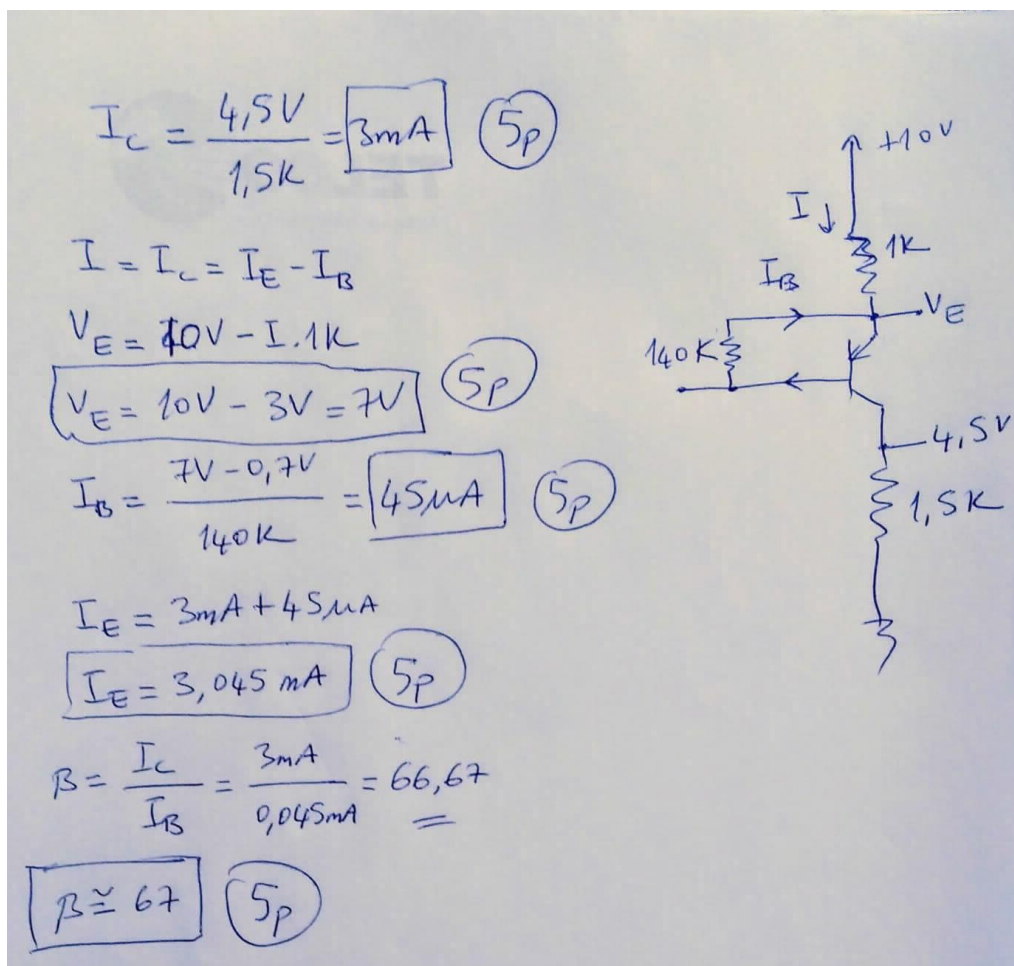 I_C = 4,5V / 1,5K = 3mA 5p
I = I_C = I_E - I_B
V_E = 10V - I.1K
V_E = 10V - 3V = 7V 5p
I_B = 7V-0,7V / 140K = 45µA 5p
I_E = 3mA + 45µA
I_E = 3,045 mA 5p
β = I_C / I_B = 3mA / 0,045mA = 66,67
β ≅ 67 5p
+10V
I
1K
I_B
V_E
140K
4,5V
1,5K